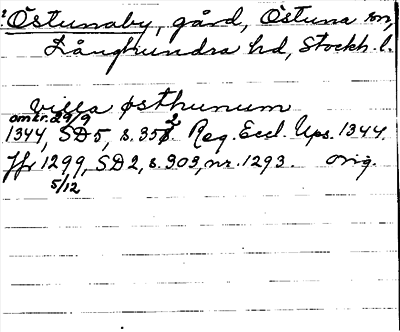 Östunaby, gård, Östuna sn,
Långhundra hd, Stockh. l.
villa østhunum
omkr. 29/9
1344, SD 5, s. 352. Reg. Eccl. Ups. 1344.
Jfr 1299, SD 2, s. 303, nr. 1293. orig.
5/12